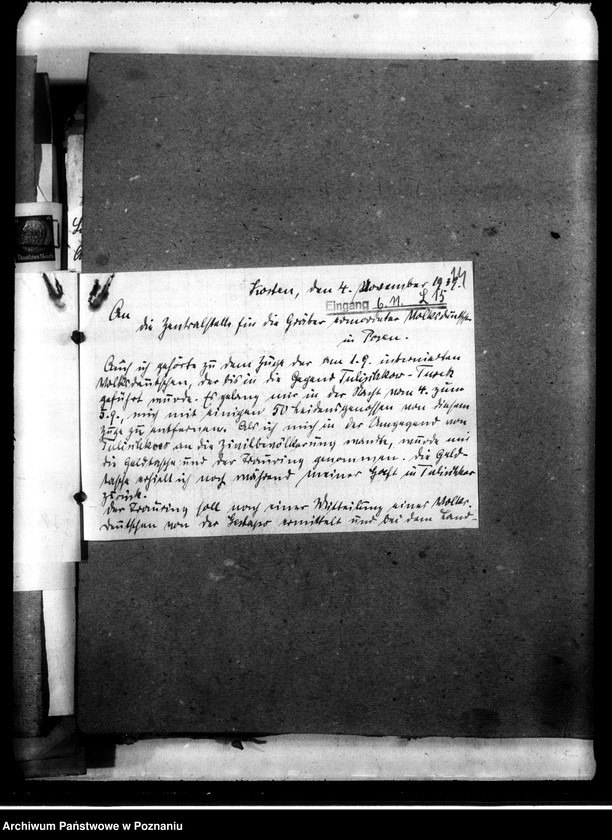 Kosten, den 4. November 1939.
Eingang 6. 11. L 15
An
die Zentralstelle für die Gräber ermordeter Volksdeutscher
in Posen.
Auch ich gehörte zu dem Zuge der am 1.9. internierten
Volksdeutschen, der bis in die Gegend Tulischkow-Turek
geführt wurde. Es gelang mir in der Nacht vom 4. zum
5.9., mich mit einigen 50 Leidensgenossen von diesem
Zuge zu entfernen. Als ich mich in der Umgegend von
Tulischkow an die Zivilbevölkerung wandte, wurde mir
die Geldtasche und der Trauring genommen. Die Geld-
tasche erhielt ich noch während meiner Haft in Tulischkow
zurück.
Der Trauring soll nach einer Mitteilung eines Volks-
deutschen von der Gestapo ermittelt und bei dem Land-
Deutsches Reich
Archiwum Państwowe w Poznaniu